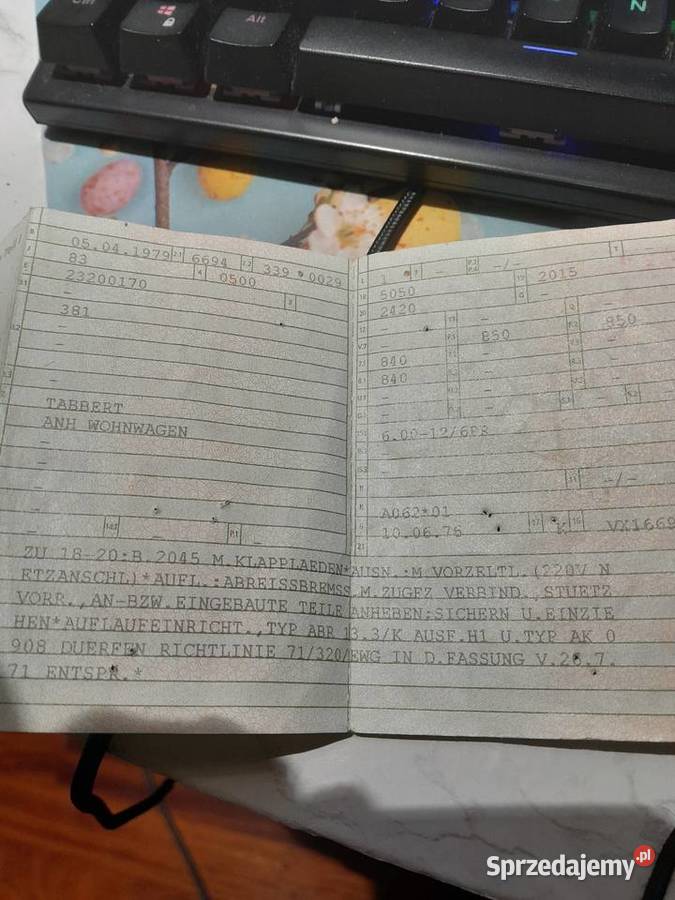 Ctrl
Alt
N
05.04.1979 2.1 6694 2.2 339 0029
83 4 0500
23200170
-
381
-
-
-
-
TABBERT
ANH WOHNWAGEN
-
-
-
- -
1 - -/- -
5050 2015
2420 -
- -
850 850
840 - -
840 - -
- - -
- -
6.00-12/6PR
-
-
- -/-
A062*01
10.06.76 17 K 16 VX1669
21
ZU 18-20:B.2045 M.KLAPPLAEDEN*AUSN.:M VORZELTL.(220V N
ETZANSCHL)*AUFL.:ABREISSBREMSS.M.ZUGFZ VERBIND.,STUETZ
VORR.,AN-BZW.EINGEBAUTE TEILE ANHEBEN;SICHERN U.EINZIE
HEN*AUFLAUFEINRICHT.,TYP ABR 13.3/K AUSF.H1 U.TYP AK 0
908 DUERFEN RICHTLINIE 71/320/EWG IN D.FASSUNG V.26.7.
71 ENTSPR.*
Sprzedajemy.pl